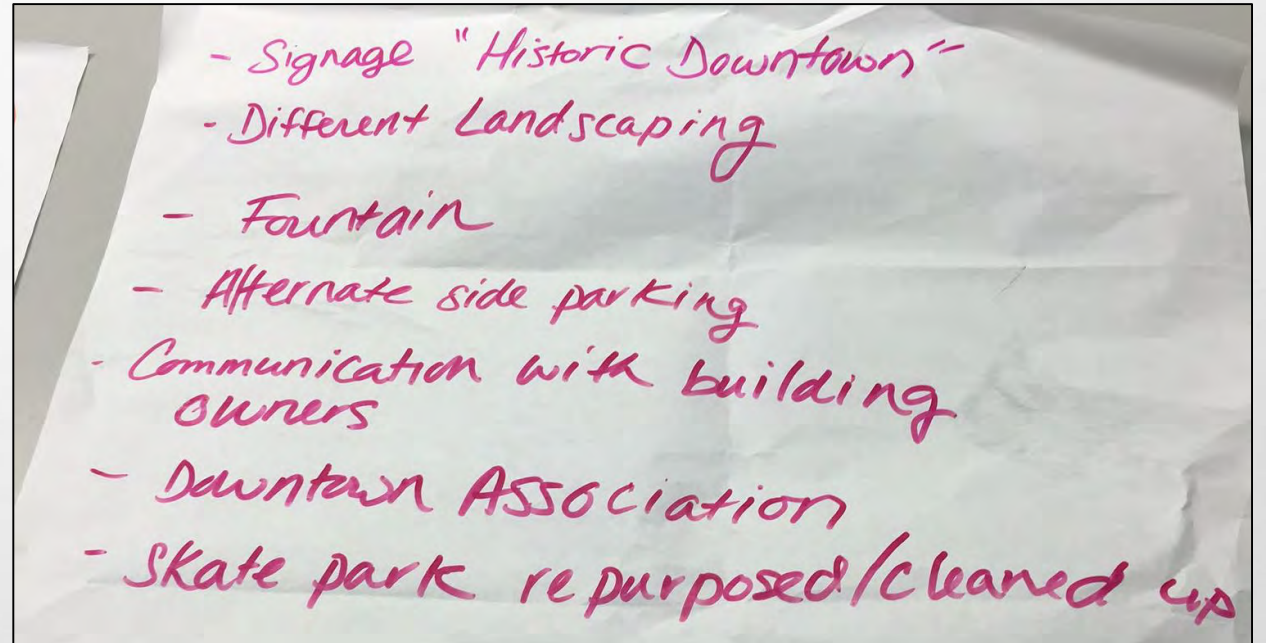 - Signage "Historic Downtown"
- Different Landscaping
- Fountain
- Alternate side parking
- Communication with building
owners
- Downtown Association
- Skate park repurposed/cleaned up